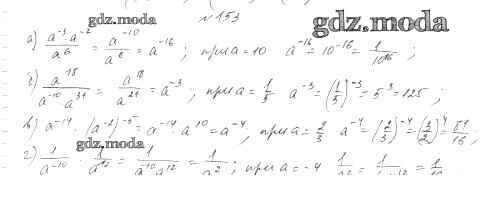 gdz.moda №153 gdz.moda
а) a⁻³·a⁻²/a⁶ = a⁻¹⁰/a⁶ = a⁻¹⁶; при a=10 a⁻¹⁶=10⁻¹⁶= 1/10¹⁶ ;
б) a¹⁸/a⁻¹⁰ a³¹ = a¹⁸/a²¹ = a⁻³ ; при a= 1/5 a⁻³=(1/5)⁻³=5³=125 ;
в) a⁻¹⁴·(a⁻²)⁻⁵= a⁻¹⁴·a¹⁰=a⁻⁴; при a= 2/3 a⁻⁴=(2/3)⁻⁴=(3/2)⁴= 81/16 ;
gdz.moda
г) 1/a⁻¹⁰ · 1/a¹² = 1/a⁻¹⁰a¹² = 1/a² ; при a= -4